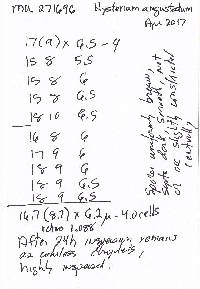 MU 271696 Hysterium angustatum
Apr 2017
.7(9) x 6.5 - 4
15 8 5.5
15 8 6
15 8 6.5
18 10 6.5
16 8 6
17 9 6
18 9 6
18 9 6.5
18 9 6.5
16.7 (8.7) x 6.2 µ - 4.0 cells
1.088
After 24h remains
as
highly
Spores uniformly brown,
septa dark, smooth, not
or ae slightly constricted
centrally